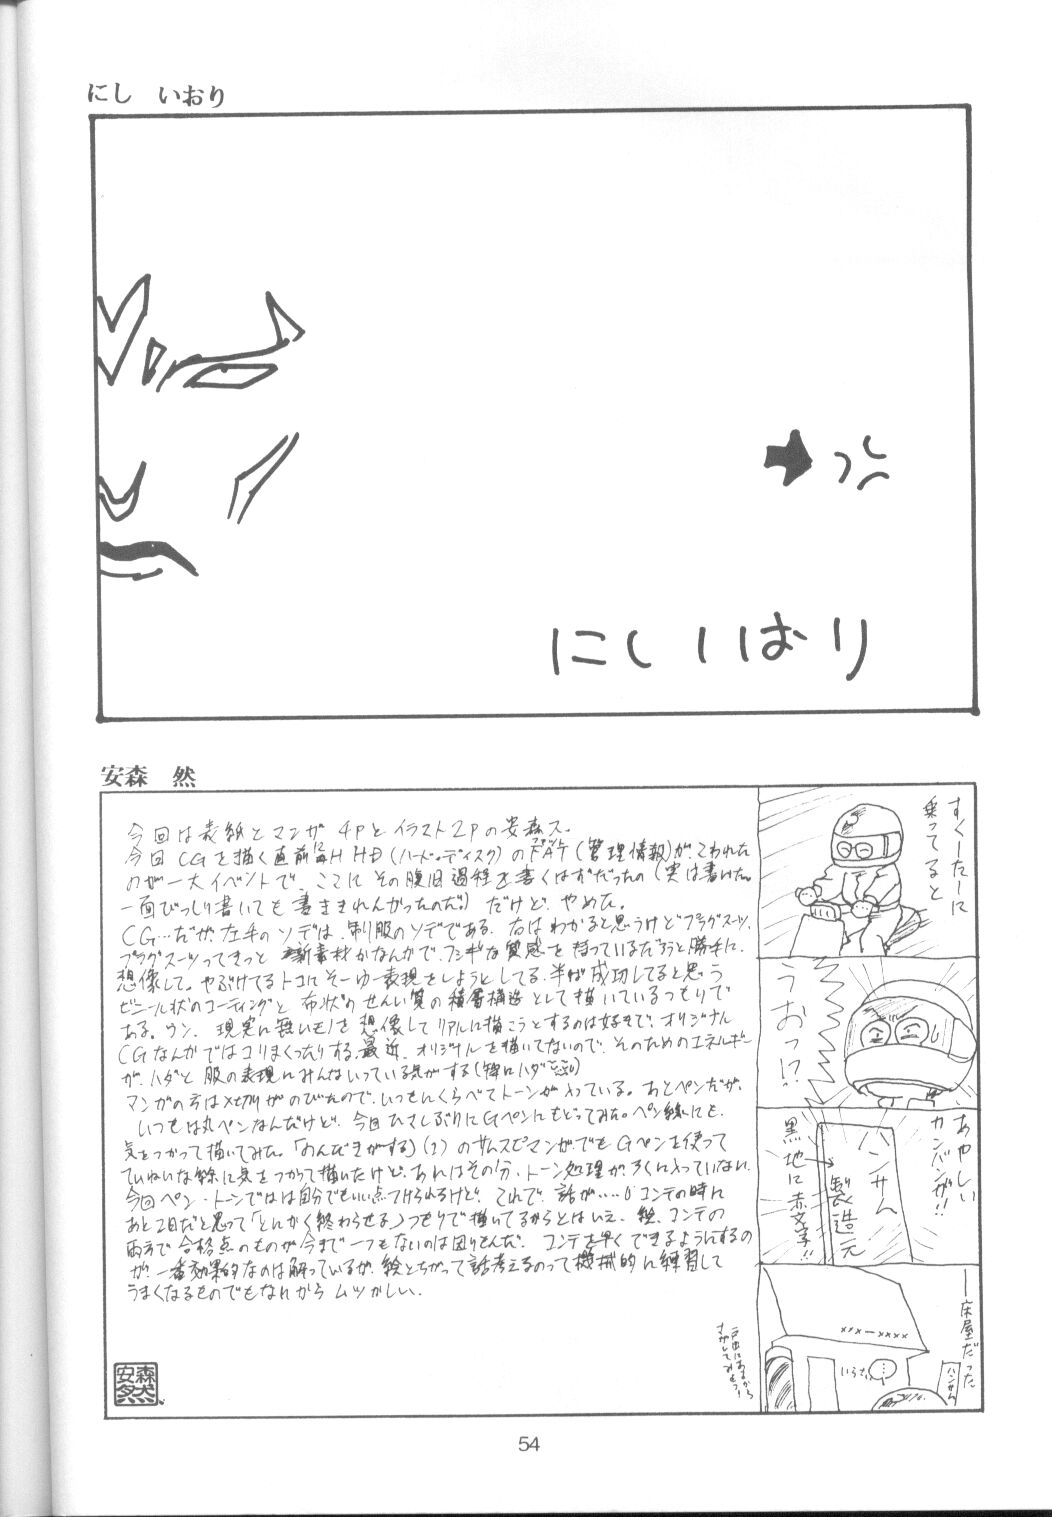 にし いおり
にしいおり
安森 然
今回は表紙とマンガ4Pとイラスト2Pの安森ス。
今回CGを描く直前に毎H HD(ハードディスク)のFAT(管理情報)がこわれた
のが一大イベントで、ここにその復旧過程を書くはずだったの(実は書けた。
一面びっしり書いても書ききれんかったのだ。)だけど、やめた。
CG…だが、左手のソデは、制服のソデである。右はわかると思うけどプラグスーツ。
プラグスーツってきっと新素材かなんかで、フシギな質感を持っているだろうと勝手に
想像して。やぶけてるトコにそーゆー表現をしようとしてる。半ば成功してると思う
ビニール状のコーティングと布状のせんい質の積層構造として描いているつもりで
ある。ウン、現実に無いモノを想像してリアルに描こうとするのは好きで、オリジナル
CGなんかではコリまくったりする。最近、オリジナルを描いてないので、そのためのエネルギー
が、ハダと服の表現にみんないっている気がする(特にハダ)
マンガの方は〆切りがのびたので、いつもにくらべてトーンが入っている。あとペンだが、
いつもは丸ペンなんだけど、今回ひさしぶりにGペンにもどってみた。ペン線にも、
気をつかって描いてみた。「のんだきがする」(?)のサムスピマンガでもGペンを使って
ていねいな線に気をつかって描いたけど、あれはその分、トーン処理がろくに入っていない。
今回ペン・トーンでは自分でもいい点つけられるけど、これで、話が……。コンテの時に
あと2日だと思って「とんかく終わらせる」つもりで描いてるからとはいえ、絵、コンテの
両方で合格点のものが今まで一つもないのは困りもんだ。コンテを早くできるようにするの
が、一番効果的なのは解っているが、絵とちがって話考えるのって機械的に練習して
うまくなるものでもないから ムツかしい。
安森然
すくーたーに
乗ってると
うおっ!?
あやしい
カンバンが!!
ハンサム
製造元
黒地に赤文字!!
―床屋だった
×××-××××
いらさい
ハンサム